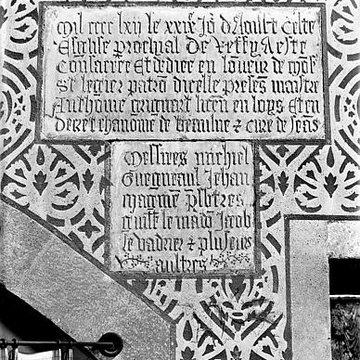 mil cccc lxii le xxixe jo d'avult ceste
eglise prochial de vefvy a este
consacree et dediee en loneur de mos
st legier patro dicelle preses maistre
anthoine grignart licen en loys et en
decret chanoine de beaulne & cure de ceas
messires michiel
guegneaul jehan
magnie pbtres
guill le mado jacob
le vadrier & pluseurs
aultres